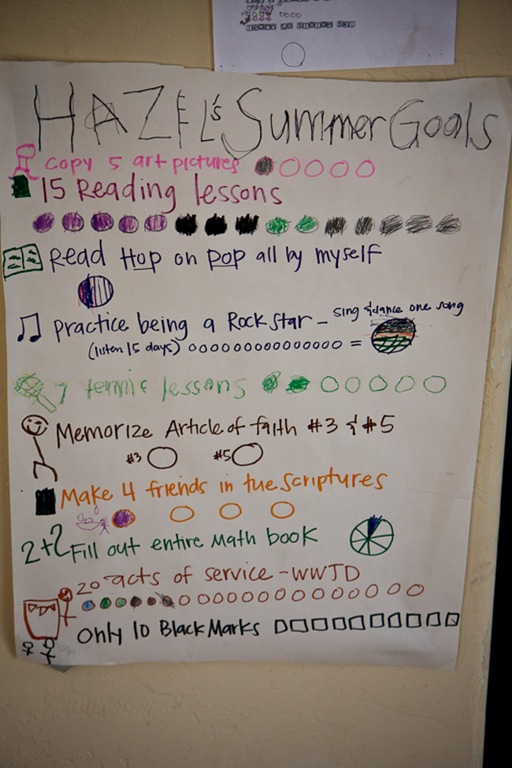 HAZEL's Summer Goals
copy 5 art pictures
15 Reading lessons
Read Hop on Pop all by myself
Practice being a Rock Star - sing & dance one song
(listen 15 days) =
7 tennis lessons
Memorize Article of faith #3 & #5
#3 #5
Make 4 friends in the scriptures
2+2 Fill out entire Math book
20 acts of service - WWJD
Only 10 Black Marks